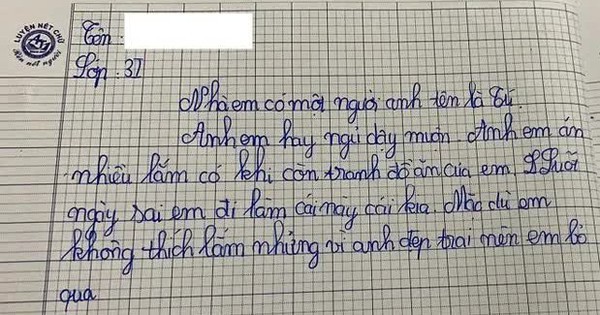 LUYỆN NÉT CHỮ
Rèn nết người
Tên :
Lớp : 3I
Nhà em có một người anh tên là Tú.
Anh em hay ngủ dậy muộn. Anh em ăn
nhiều lắm có khi còn tranh đồ ăn của em. Suốt
ngày sai em đi làm cái này cái kia. Mặc dù em
không thích lắm nhưng vì anh đẹp trai nên em bỏ
qua